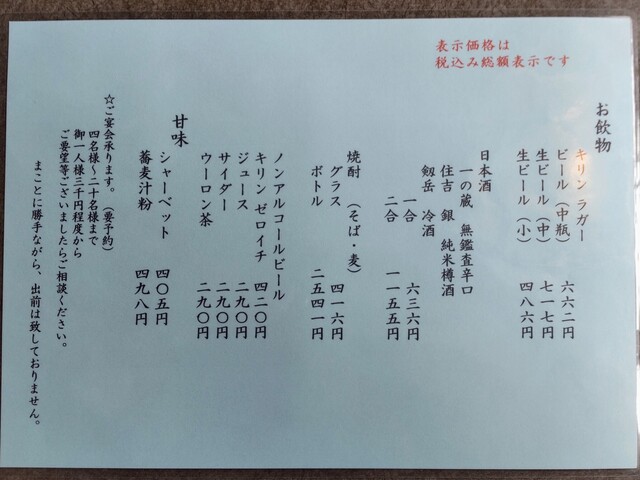 表示価格は
税込み総額表示です
お飲物
キリン ラガー
ビール(中瓶) 六六二円
生ビール(中) 七一七円
生ビール(小) 四八六円
日本酒
一の蔵 無鑑査辛口
住吉 銀 純米樽酒
剱岳 冷酒
一合 六三六円
二合 一一五五円
焼酎 (そば・麦)
グラス 四一六円
ボトル 二五四一円
ノンアルコールビール
キリン ゼロイチ 四二〇円
ジュース 二九〇円
サイダー 二九〇円
ウーロン茶 二九〇円
甘味
シャーベット 四〇五円
蕎麦汁粉 四九八円
☆ご宴会承ります。(要予約)
四名様~二十名様まで
御一人様三千円程度から
ご要望等ございましたらご相談ください。
まことに勝手ながら、出前は致しておりません。